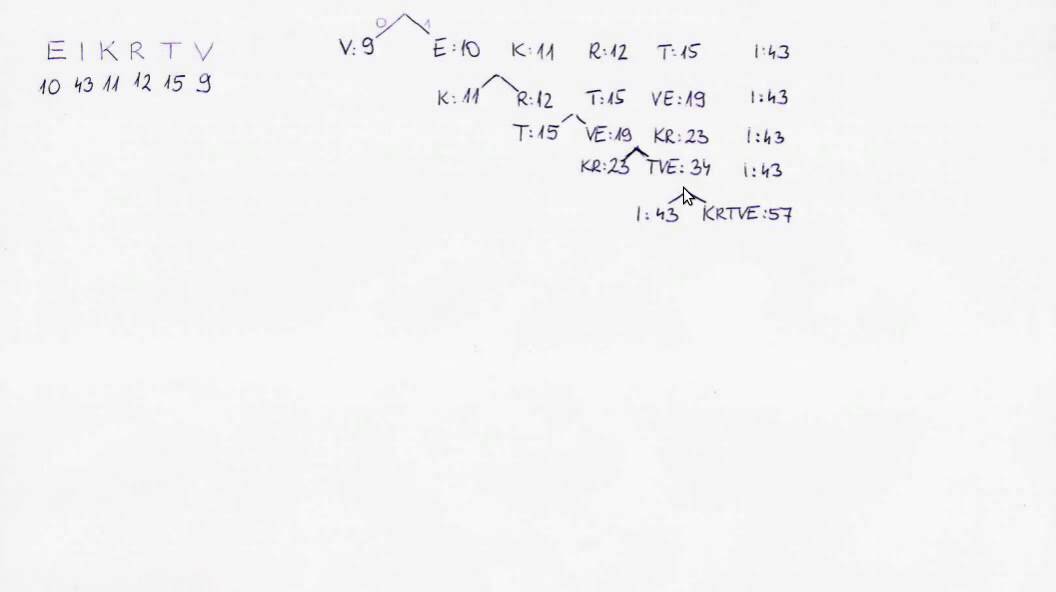 0 1
E I K R T V
V:9 E:10 K:11 R:12 T:15 I:43
10 43 11 12 15 9
K:11 R:12 T:15 VE:19 I:43
T:15 VE:19 KR:23 I:43
KR:23 TVE:34 I:43
I:43 KRTVE:57